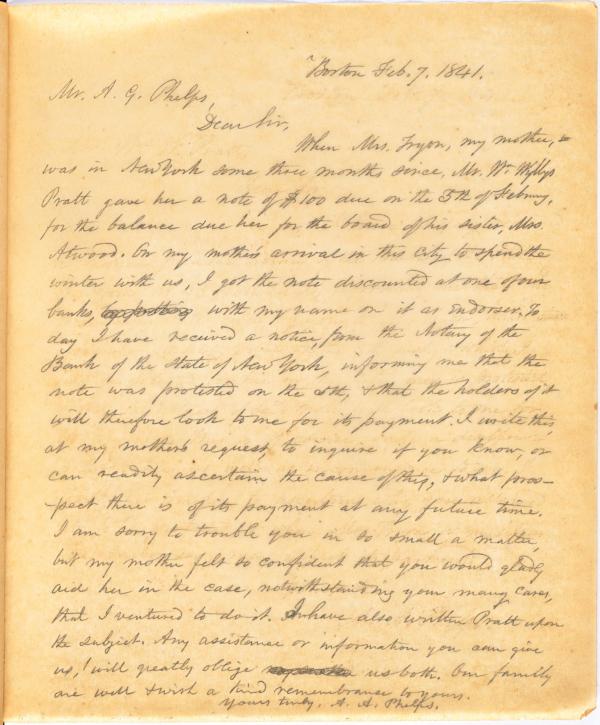 Boston Feb. 7. 1841.
Mr. A. G. Phelps,
Dear Sir,
When Mrs. Tryon, my mother,
was in New York some three months since, Mr. Wm Wyllys
Pratt gave her a note of $100 due on the 5th of Febuary,
for the balance due her for the board of his sister, Mrs.
Atwood. On my mother's arrival in this city to spend the
winter with us, I got the note discounted at one of our
banks, with my name on it as Endorser. To
day I have received a notice, from the Notary of the
Bank of the State of New York, informing me that the
note was protested on the 5th, & that the holders of it
will therefore look to me for its payment. I write this,
at my mother's request, to inquire if you know, or
can readily ascertain the cause of this, & what pros-
-pect there is of its payment at any future time.
I am sorry to trouble you in so small a matter,
but my mother felt so confident that you would gladly
aid her in the case, notwithstanding your many cares,
that I ventured to do it. I have also written Pratt upon
the subject. Any assistance or information you can give
us, will greatly oblige us both. Our family
are well & wish a kind remembrance to yours.
Yours truly, A. A. Phelps.